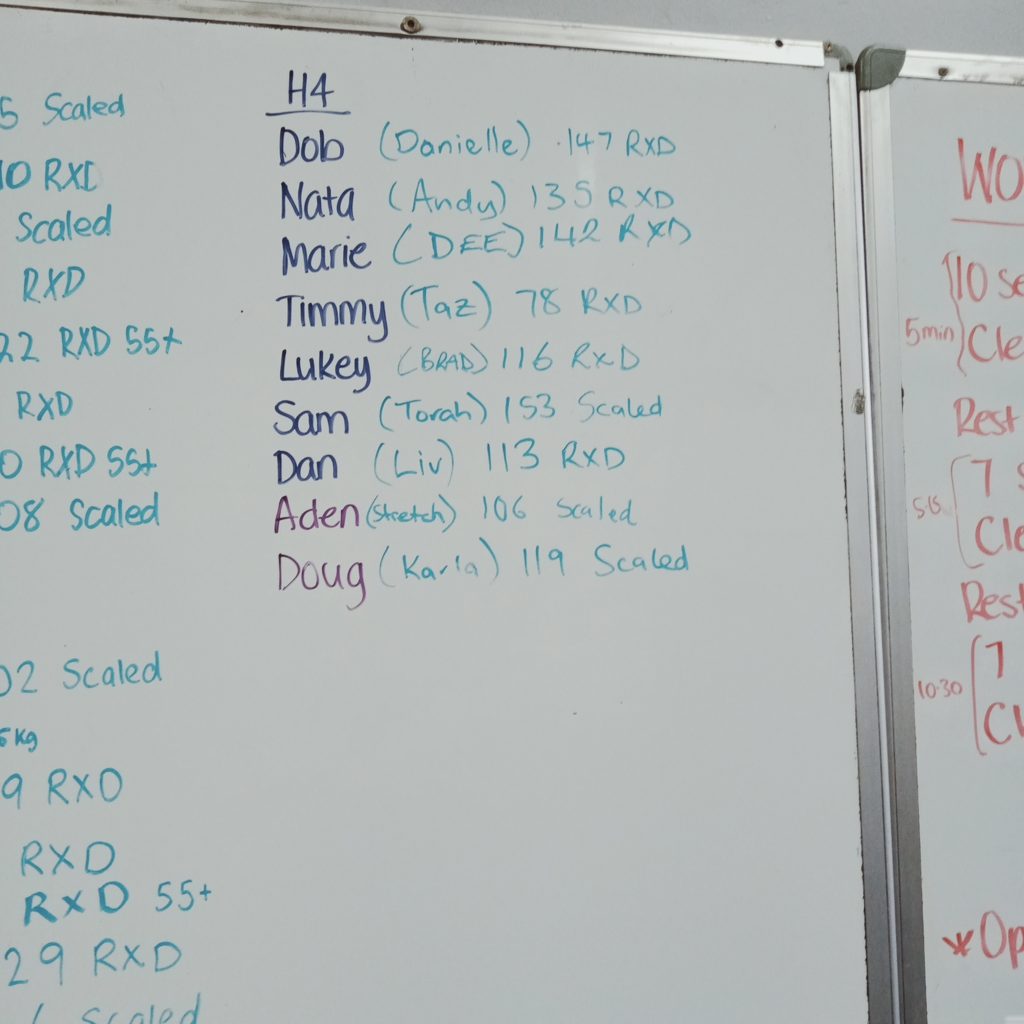 5 Scaled
10 RXD
Scaled
RXD
22 RXD 55+
RXD
0 RXD 55+
08 Scaled
02 Scaled
5Kg
9 RXD
RXD
RXD 55+
29 RXD
Scaled
H4
Dob (Danielle) 147 RXD
Nata (Andy) 135 RXD
Marie (DEE) 142 RXD
Timmy (Taz) 78 RXD
Lukey (BRAD) 116 RXD
Sam (Torah) 153 Scaled
Dan (Liv) 113 RXD
Aden (Stretch) 106 Scaled
Doug (Karla) 119 Scaled
WO
10 Se
5min Cle
Rest
7 S
5-15 Cle
Rest
7
10-30 Cl
*Op